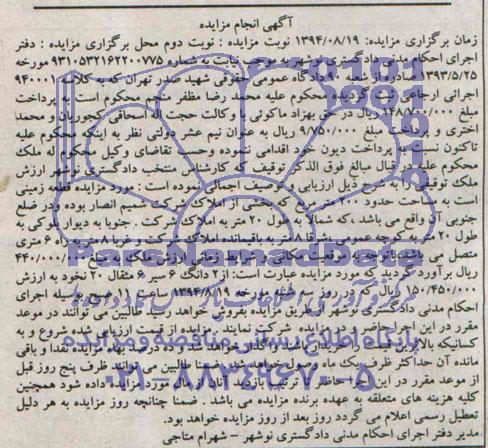 آگهی انجام مزایده
زمان برگزاری مزایده: ۱۳۹۴/۰۸/۱۹ نوبت مزایده : نوبت دوم محل برگزاری مزایده : دفتر
اجرای احکام مدنی دادگستری نوشهر به موجب نیابت به شماره ۹۳۱۰۵۳۲۱۶۲۲۰۰۷۷۵ مورخه
۱۳۹۳/۵/۲۵ صادره از شعبه ۹۰ دادگاه عمومی حقوقی شهید صدر تهران که به کلاسه ۹۴۰۰۰۱
اجرائی ارجاعی ثبت گردید محکوم علیه محمد رضا مظفر منجم محکوم است به پرداخت
مبلغ ریال در حق بهزاد ماکوئی با وکالت حجت اله اسحاقی کجوریان و محمد
اختری و پرداخت مبلغ ۹/۷۵۰/۰۰۰ ریال به عنوان نیم عشر دولتی نظر به اینکه محکوم علیه
تاکنون نسبت به پرداخت دیون خود اقدامی ننموده وحسب تقاضای وکیل محکوم له ملک
محکوم علیه در قبال مبالغ فوق الذکر توقیف که کارشناس منتخب دادگستری نوشهر ارزش
ملک توقیفی را به شرح ذیل ارزیابی و توصیف اجمالی نموده است : مورد مزایده قطعه زمینی
است به مساحت حدود ۲۰۰ متر مربع که بخشی از املاک شرکت نسیم انصار بوده و در ضلع
جنوبی آن واقع می باشد ،که شمالا به طول ۲۰ متر به املاک شرکت . جنوبا به دیوار بلوکی به
طول ۲۰ متر به کوچه عمومی بشرقا ۸ متر به باقیمانده املاک شرکت و غربا ۸ متر به راه ۶ متری
متصل می باشد،باتوجه به موقعیت مکانی و شرایط زمانی ارزش ملک به مبلغ ۴۴۰/۰۰۰/۰۰۰
ریال برآورد گردید که مورد مزایده عبارت است: از ۲ دانگ ۶ سیر ۶ مثقال ۲۰ نخود به ارزش
۱۵۰/۴۵۰/۰۰۰ ریال در روز سه شنبه مورخه ۱۳۹۴/۰۸/۱۹ ساعت ۱۱ صبح بوسیله اجرای
احکام مدنی دادگستری نوشهر از طریق مزایده بفروش خواهد رسید طالبین می توانند در موعد
مقرر در این اجرا حاضر و در مزایده شرکت نمایند . مزایده از قیمت ارزیابی شده شروع و به
کسانیکه بالاترین قیمت را خریدار باشند واگذار خواهد شد و ده درصد بهاء مزایده نقدا و باقی
مانده آن حداکثر ظرف یک ماه وصول خواهد شد ضمنا طالبین می توانند ظرف پنج روز قبل
از موعد مقرر در این اجرا حاضر تا ترتیب بازدید آنان از ملک مورد مزایده داده شود همچنین
کلیه هزینه های متعلقه به عهده برنده مزایده می باشد . ضمنا چنانچه روز مزایده به هر دلیل
تعطیل رسمی اعلام می گردد روز بعد از روز مزایده خواهد بود.
مدیر دفتر اجرای احکام مدنی دادگستری نوشهر - شهرام متاجی
پایگاه اطلاع رسانی مناقصه و مزایده
۰۲۱-۸۸۳۴۹۶۷۰-۵